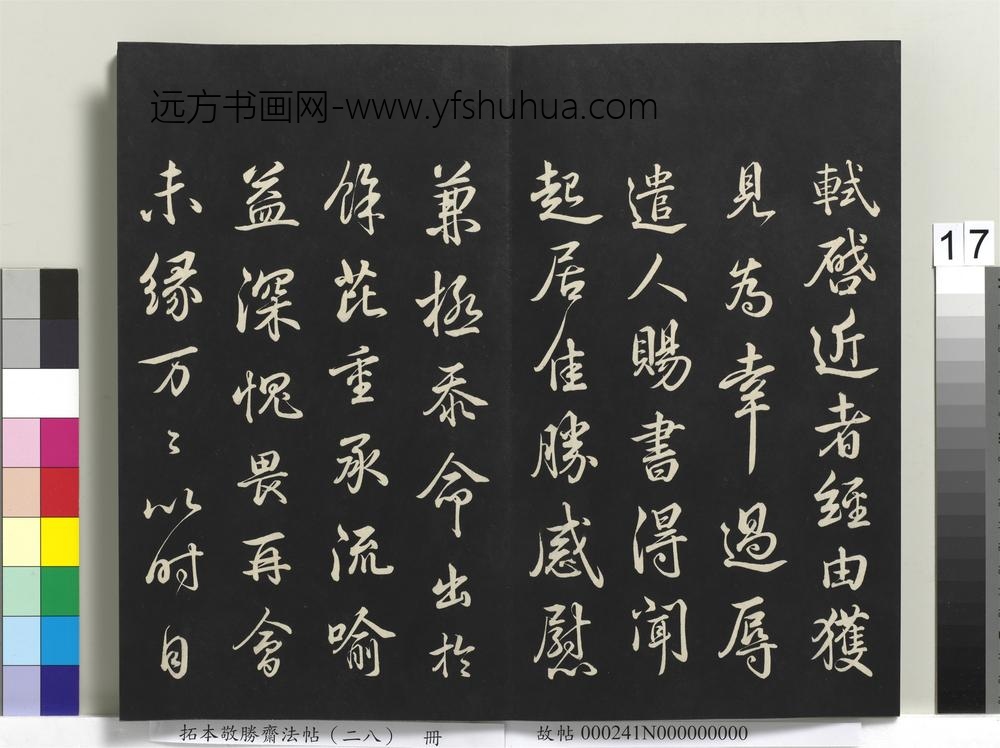 远方书画网-www.yfshuhua.com
軾啓近者經由獲
見为幸過辱
遣人賜書得聞
起居佳勝感慰
兼極忝命出於
餘芘重承流喻
益深愧畏再會
未緣万〻以时自
17
拓本敬勝齋法帖（二八） 冊
故帖 000241N000000000